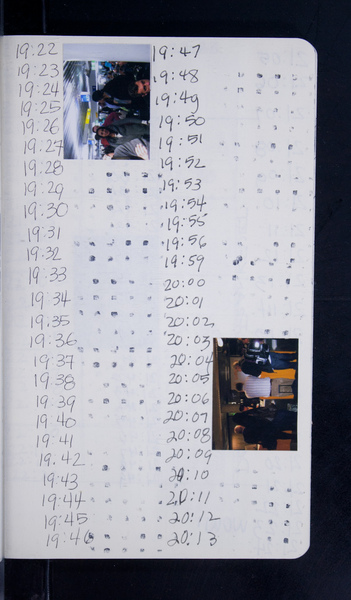 19:22
19:23
19:24
19:25
19:26
19:27
19:28
19:29
19:30
19:31
19:32
19:33
19:34
19:35
19:36
19:37
19:38
19:39
19:40
19:41
19.42
19:43
19:44
19:45
19:46
19:47
19:48
19:49
19:50
19:51
19:52
19:53
19:54
19:55
19:56
19:59
20:00
20:01
20:02
20:03
20:04
20:05
20:06
20:07
20:08
20:09
20:10
20:11
20:12
20:13